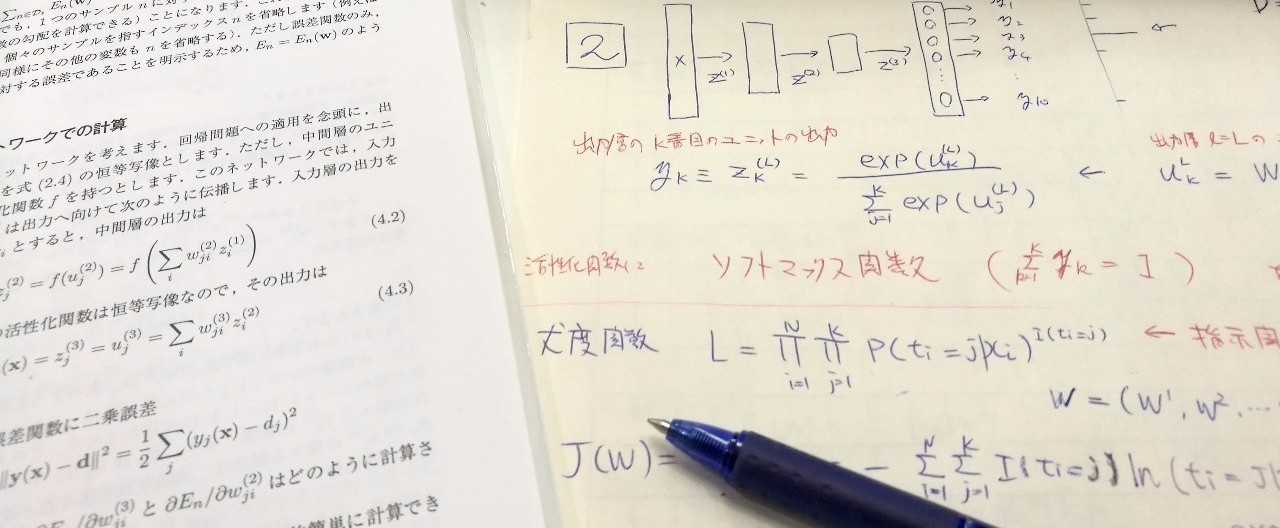 ∑n∈Dt En(w) に対
でも，1つのサンプル n に対
数の勾配を計算できる）ことになります．
個々のサンプルを指すインデックス n を省略する）．ただし誤差関数のみ，
同様にその他の変数も n を省略する）．ただし誤差関数のみ，
対する誤差であることを明示するため，En = En(w) のよう
トワークでの計算
ットワークを考えます．回帰問題への適用を念頭に，出
を式 (2.4) の恒等写像とします．ただし，中間層のユニ
化関数 f を持つとします．このネットワークでは，入力
は出力へ向けて次のように伝播します．入力層の出力を
i とすると，中間層の出力は
zj^(2) = f(uj^(2)) = f(∑i wji^(2) zi^(1)) (4.2)
活性化関数は恒等写像なので，その出力は
(x) = zj^(3) = uj^(3) = ∑i wji^(3) zi^(2) (4.3)
誤差関数に二乗誤差
‖y(x) − d‖² = 1/2 ∑j (yj(x) − dj)²
∂En/∂wji^(3) と ∂En/∂wji^(2) はどのように計算さ
簡単に計算でき
2
x → z^(1) → z^(2) → z^(3)
y1
y2
y3
y4
⋮
y10
出力層の k番目のユニットの出力
yk ≡ zk^(L) = exp(uk^(L)) / ∑j=1^K exp(uj^(L)) ←
出力層 l=L の
uk^L = W
活性化関数に ソフトマックス関数 (∑k=1^K yk = 1)
尤度関数 L = ∏i=1^N ∏j=1^K P(ti=j|xi)^I(ti=j) ← 指示関
W = (W¹, W², …
J(W) = − ∑i=1^N ∑j=1^K I(ti=j) ln (ti=j|